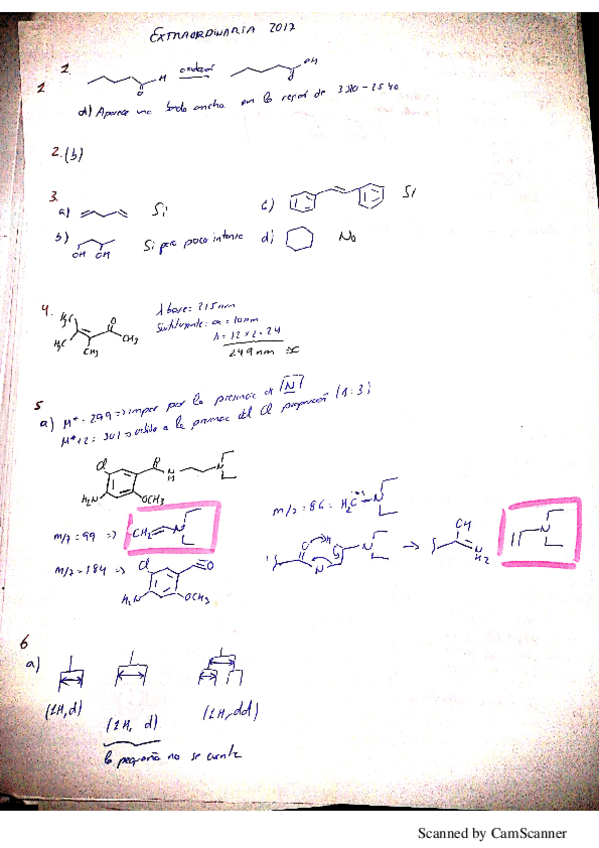 EXTRAORDINARIA 2017
1
1.
H
O
oxidación
OH
O
d) Aparece una banda ancha en la region de 3300-2540
2. (b)
3.
a) Si
c) Si
b) OH OH Si pero poco intensa
d) No
4.
H3C
H3C
CH3
O
CH3
λ base: 215nm
Sustituyente: α = 10nm
12 x 2 = 24
249 nm
5
a) M+ · 299 => impar por la presencia de N
M+2 = 301 => debido a la presencia del Cl proporción (1:3)
Cl
O
N
H
N
H2N
OCH3
m/z = 86 = H2C N
m/z = 99 => CH2 N
m/z = 184 =>
Cl
O
H2N
OCH3
O H
N
N
OH
NH2
N
6
a)
(1H, d)
(1H, d)
(1H, dd)
la pequeña no se cuenta
Scanned by CamScanner